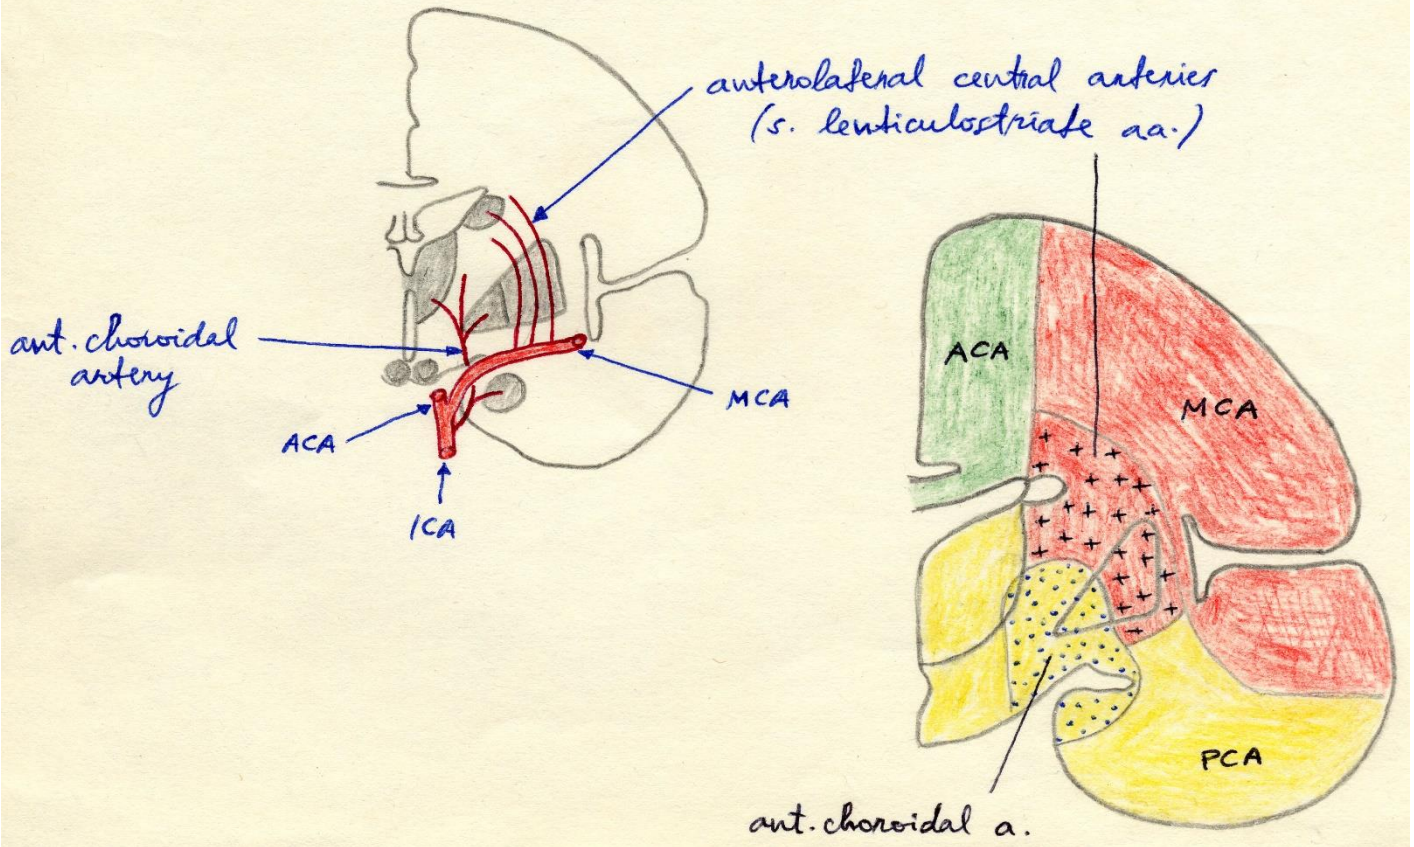 anterolateral central arteries
(s. lenticulostriate aa.)
ant. choroidal
artery
ACA
ICA
MCA
ACA
MCA
PCA
ant. choroidal a.